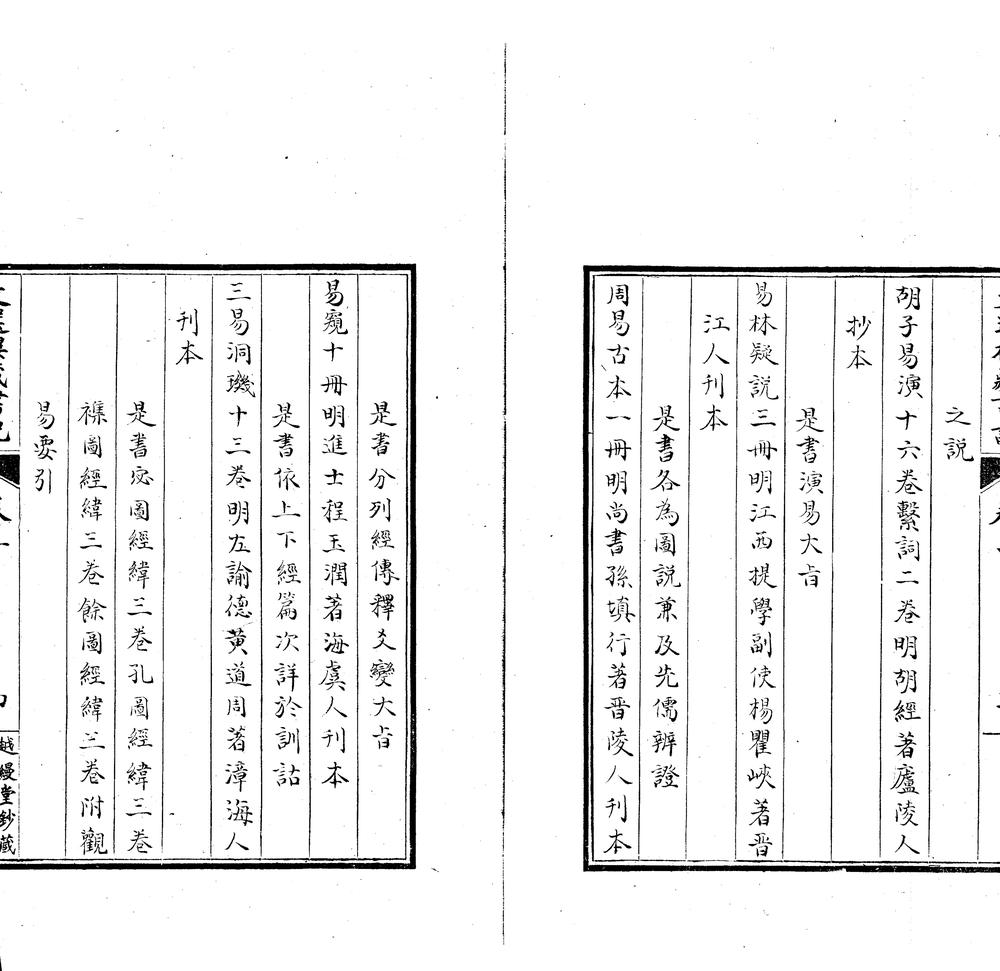 之説
胡子易演十六卷繫詞二卷明胡經著廬陵人
抄本
是書演易大旨
易林疑説三冊明江西提學副使楊瞿崍著晋
江人刊本
是書各為圖説兼及先儒辨證
周易古本一冊明尚書孫塡行著晋陵人刊本
是書分列經傳釋爻變大旨
易窺十冊明進士程玉潤著海虞人刊本
是書依上下經篇次詳於訓詁
三易洞璣十三卷明左諭德黄道周著漳海人
刊本
是書宓圖經緯三卷孔圖經緯三卷
襍圖經緯三卷餘圖經緯三卷附觀
易要引
越縵堂鈔藏